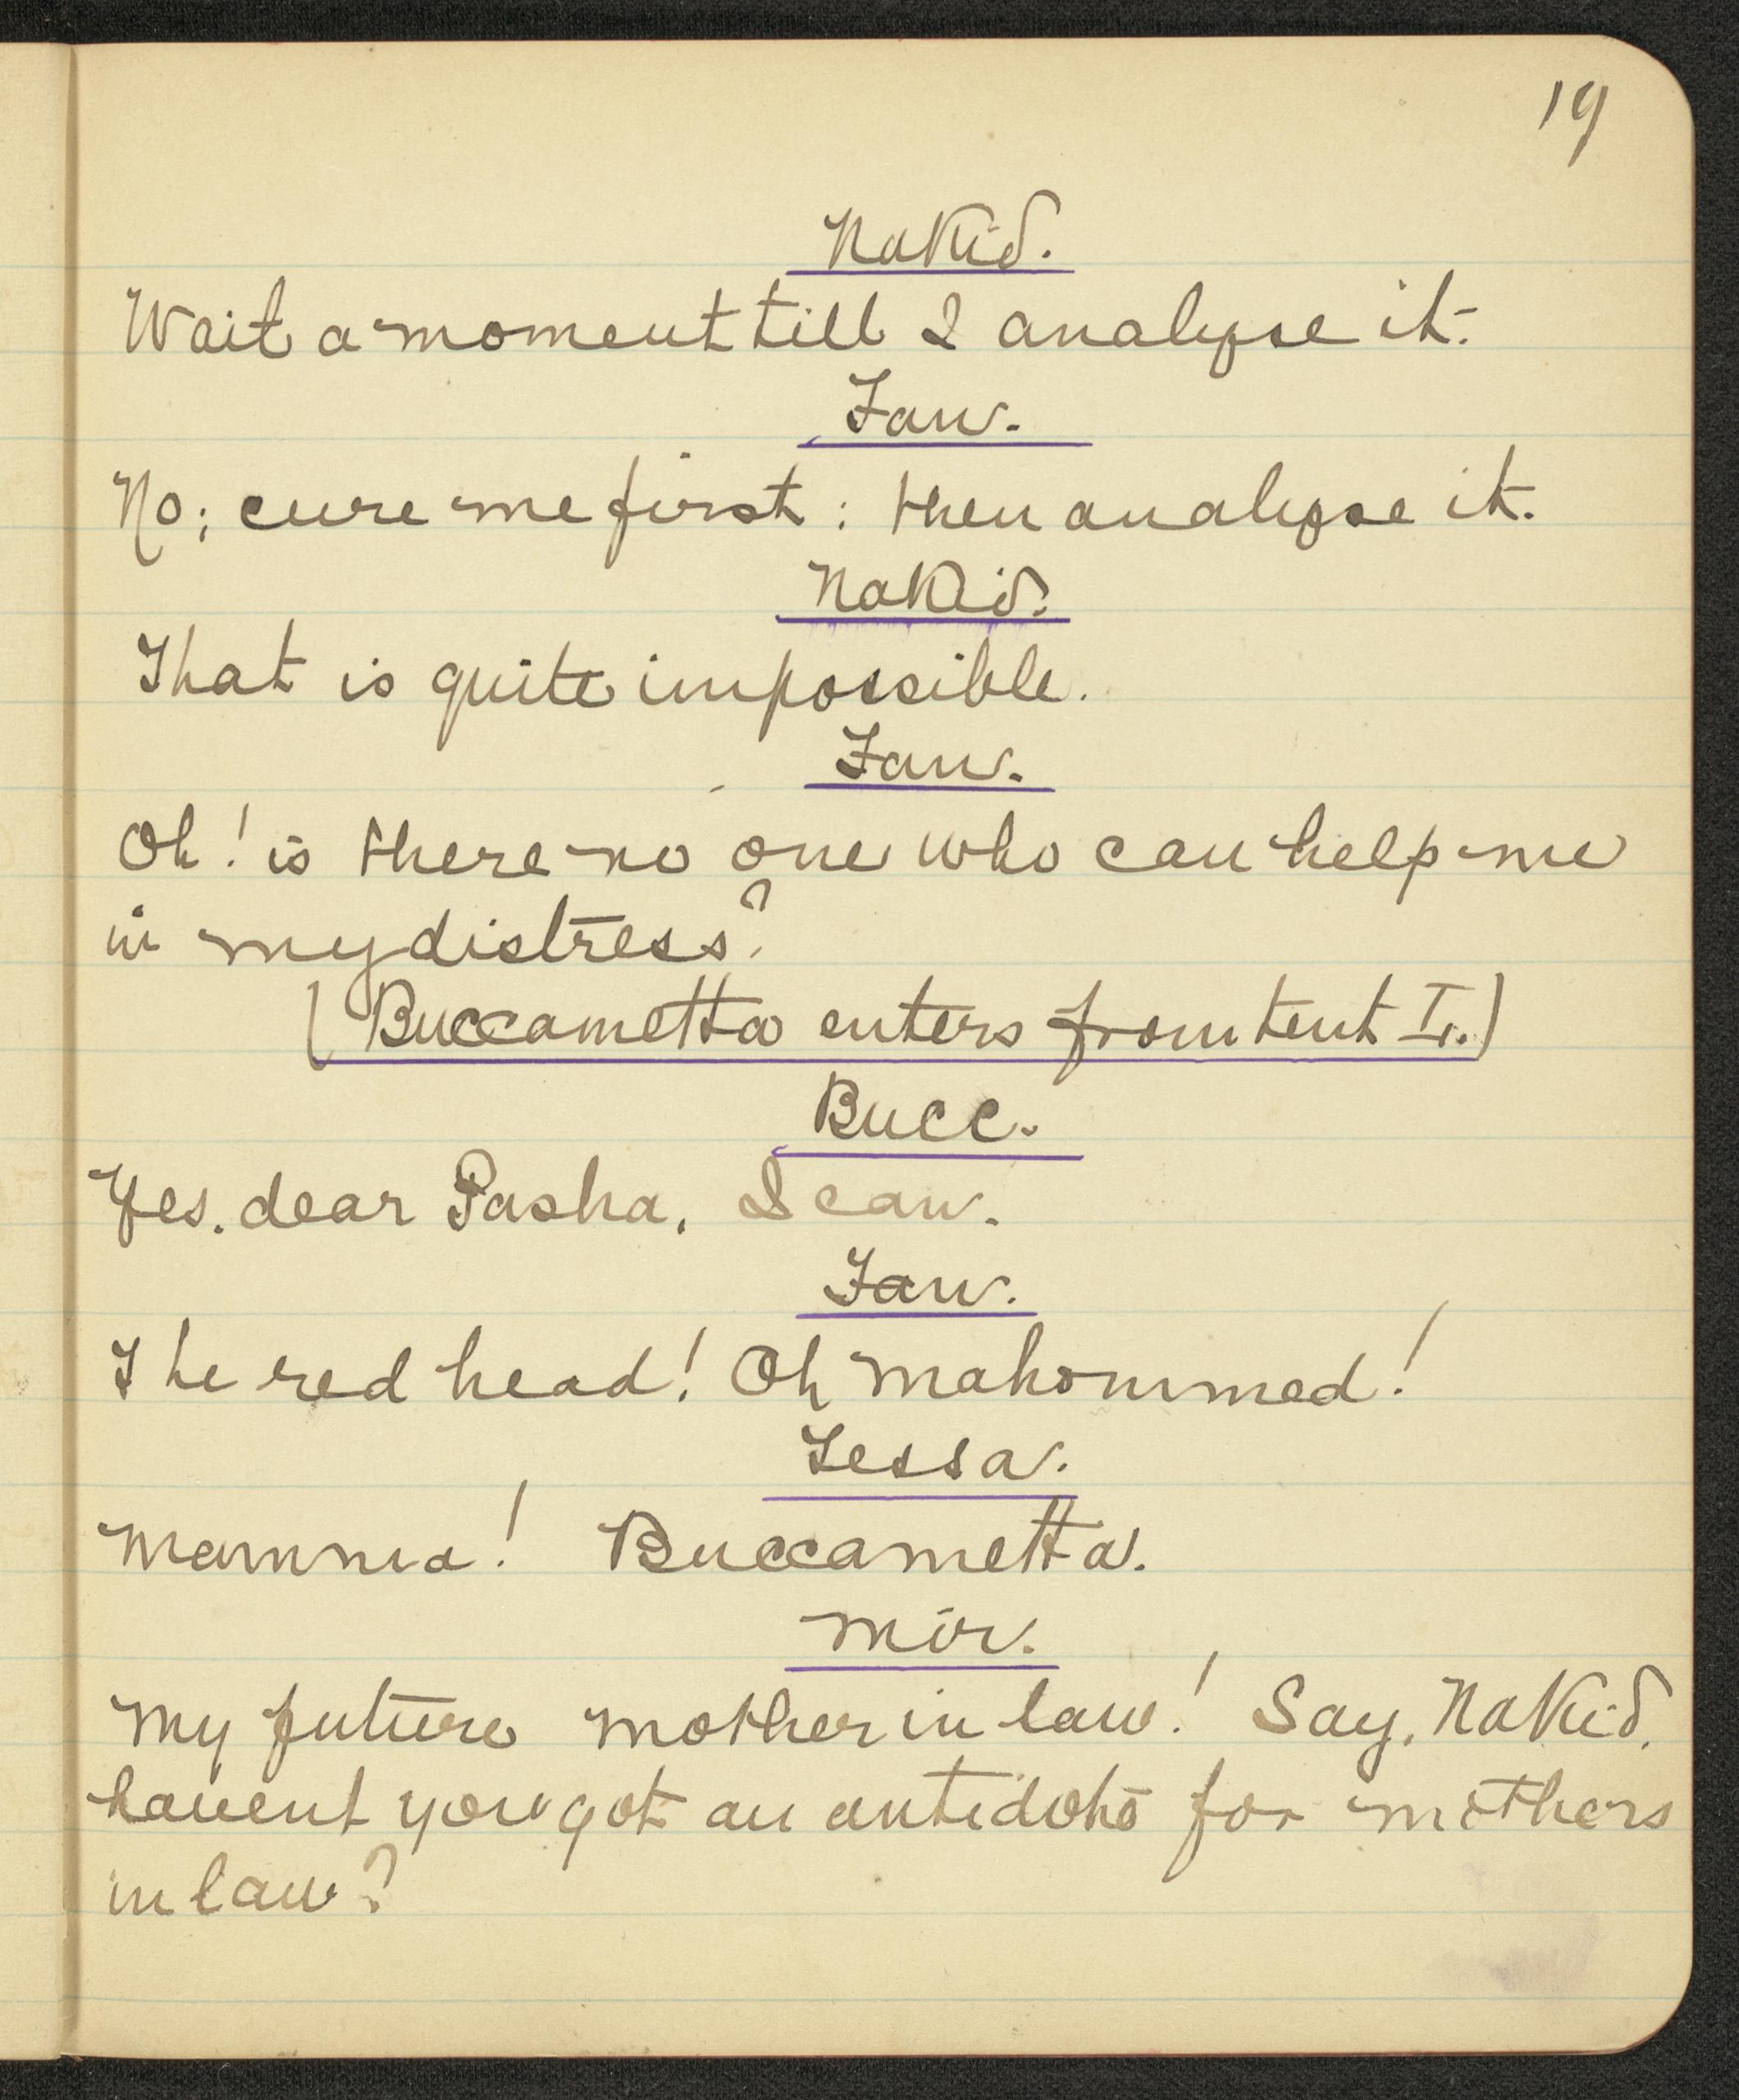 19
Nakid.
Wait a moment till I analyse it.
Tan.
No; cure me first: then analyse it.
Nakid.
That is quite impossible.
Tan.
Oh! is there no one who can help me
in my distress?
(Buccametta enters from tent I.)
Bucc.
Yes. dear Pasha, I can.
Tan.
The red head! Oh Mahommed!
Tessa.
Mamma! Buccametta.
Mir.
My future mother in law! Say, Nakid,
havent you got an antidote for mothers
in law?